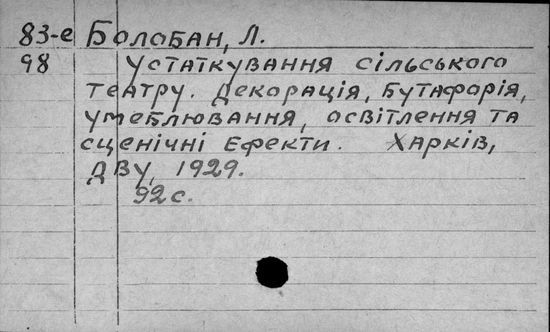 83-е Болобан, Л.
98 Устаткування сільського
театру. Декорація, бутафорія,
умеблювання, освітлення та
сценічні ефекти. Харків,
ДВУ, 1929.
92 с.